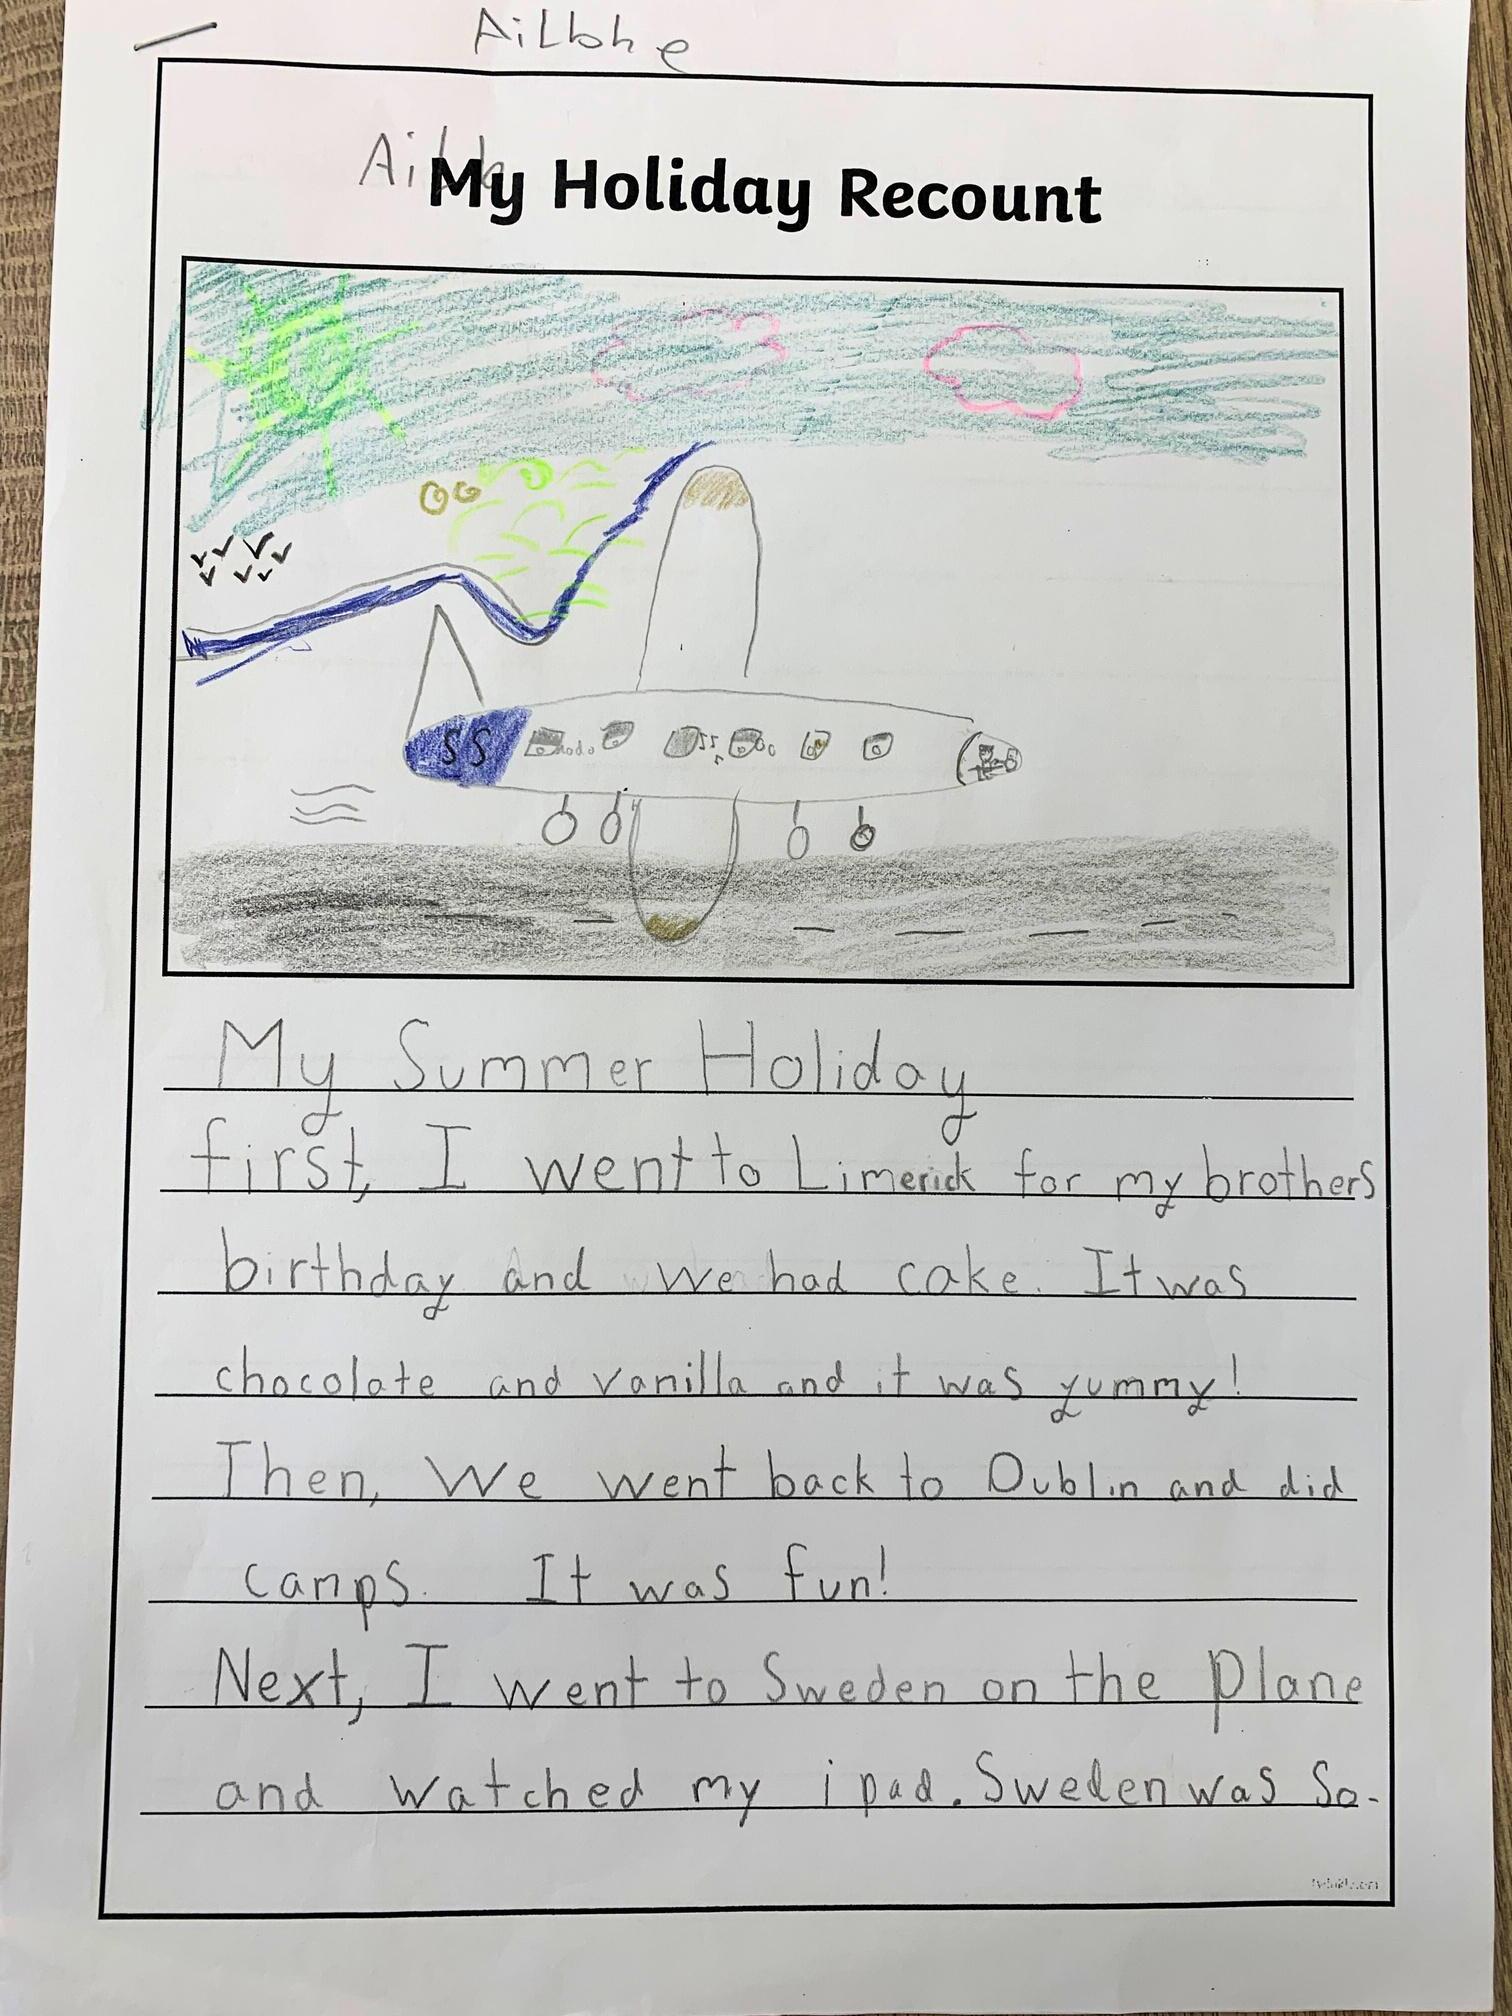 AiLbhe
Ailb
My Holiday Recount
SS
My Summer Holiday
first, I went to Limerick for my brothers
birthday and we had cake. It was
chocolate and vanilla and it was yummy!
Then, We went back to Dublin and did
camps. It was fun!
Next, I went to Sweden on the plane
and watched my ipad. Sweden was So-